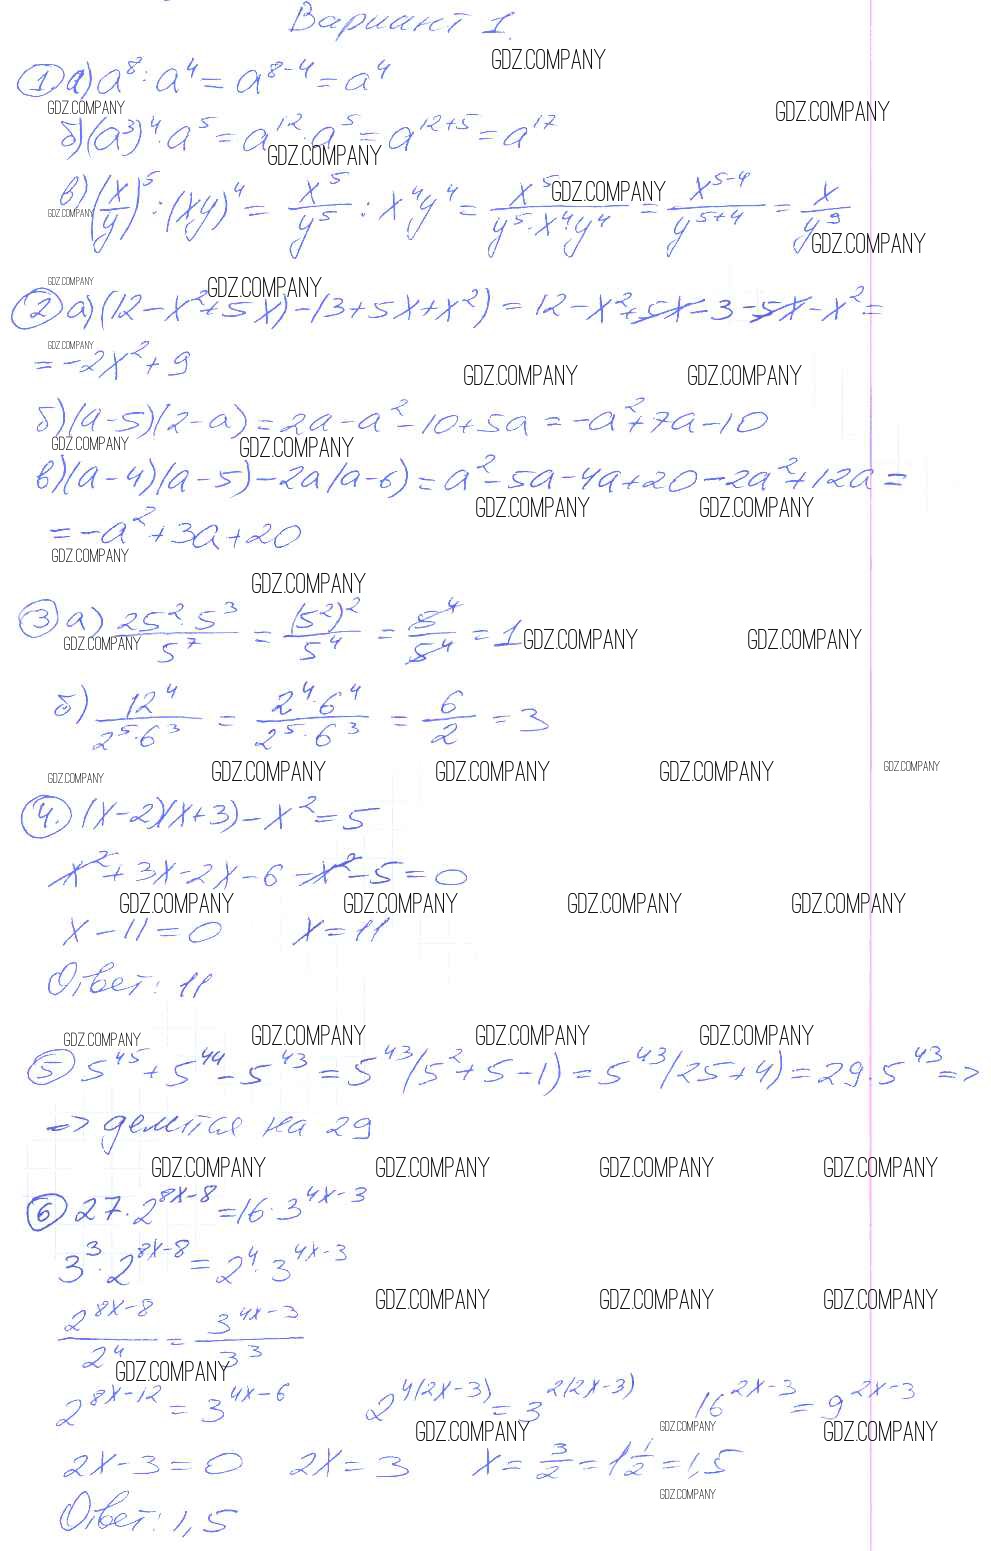 Вариант 1.
GDZ.COMPANY
① а) a⁸ : a⁴ = a⁸⁻⁴ = a⁴
GDZ.COMPANY GDZ.COMPANY
б) (a³)⁴ · a⁵ = a¹² · a⁵ = a¹²⁺⁵ = a¹⁷
GDZ.COMPANY
в) (x/y)⁵ : (xy)⁴ = x⁵/y⁵ : x⁴y⁴ = x⁵/(y⁵·x⁴y⁴) = x⁵⁻⁴/y⁵⁺⁴ = x/y⁹
GDZ.COMPANY GDZ.COMPANY
GDZ.COMPANY
GDZ.COMPANY GDZ.COMPANY
② а) (12 – x² + 5x) – (3 + 5x + x²) = 12 – x² + 5x – 3 – 5x – x² =
GDZ.COMPANY
= –2x² + 9
GDZ.COMPANY GDZ.COMPANY
б) (a – 5)(2 – a) = 2a – a² – 10 + 5a = –a² + 7a – 10
GDZ.COMPANY GDZ.COMPANY
в) (a – 4)(a – 5) – 2a(a – 6) = a² – 5a – 4a + 20 – 2a² + 12a =
GDZ.COMPANY GDZ.COMPANY
= –a² + 3a + 20
GDZ.COMPANY
GDZ.COMPANY
③ а) (25² · 5³)/5⁷ = (5²)²/5⁴ = 5⁴/5⁴ = 1
GDZ.COMPANY GDZ.COMPANY GDZ.COMPANY
б) 12⁴/(2⁵·6³) = (2⁴·6⁴)/(2⁵·6³) = 6/2 = 3
GDZ.COMPANY GDZ.COMPANY GDZ.COMPANY GDZ.COMPANY GDZ.COMPANY
④. (x – 2)(x + 3) – x² = 5
x² + 3x – 2x – 6 – x² – 5 = 0
GDZ.COMPANY GDZ.COMPANY GDZ.COMPANY GDZ.COMPANY
x – 11 = 0 x = 11
Ответ: 11
GDZ.COMPANY GDZ.COMPANY GDZ.COMPANY GDZ.COMPANY
⑤ 5⁴⁵ + 5⁴⁴ – 5⁴³ = 5⁴³(5² + 5 – 1) = 5⁴³(25 + 4) = 29 · 5⁴³ =>
=> делится на 29
GDZ.COMPANY GDZ.COMPANY GDZ.COMPANY GDZ.COMPANY
⑥ 27 · 2^(8x–8) = 16 · 3^(4x–3)
3³ · 2^(8x–8) = 2⁴ · 3^(4x–3)
GDZ.COMPANY GDZ.COMPANY GDZ.COMPANY
2^(8x–8)/2⁴ = 3^(4x–3)/3³
GDZ.COMPANY
2^(8x–12) = 3^(4x–6) 2^(4(2x–3)) = 3^(2(2x–3)) 16^(2x–3) = 9^(2x–3)
GDZ.COMPANY GDZ.COMPANY GDZ.COMPANY
2x – 3 = 0 2x = 3 x = 3/2 = 1 1/2 = 1,5
GDZ.COMPANY
Ответ: 1,5